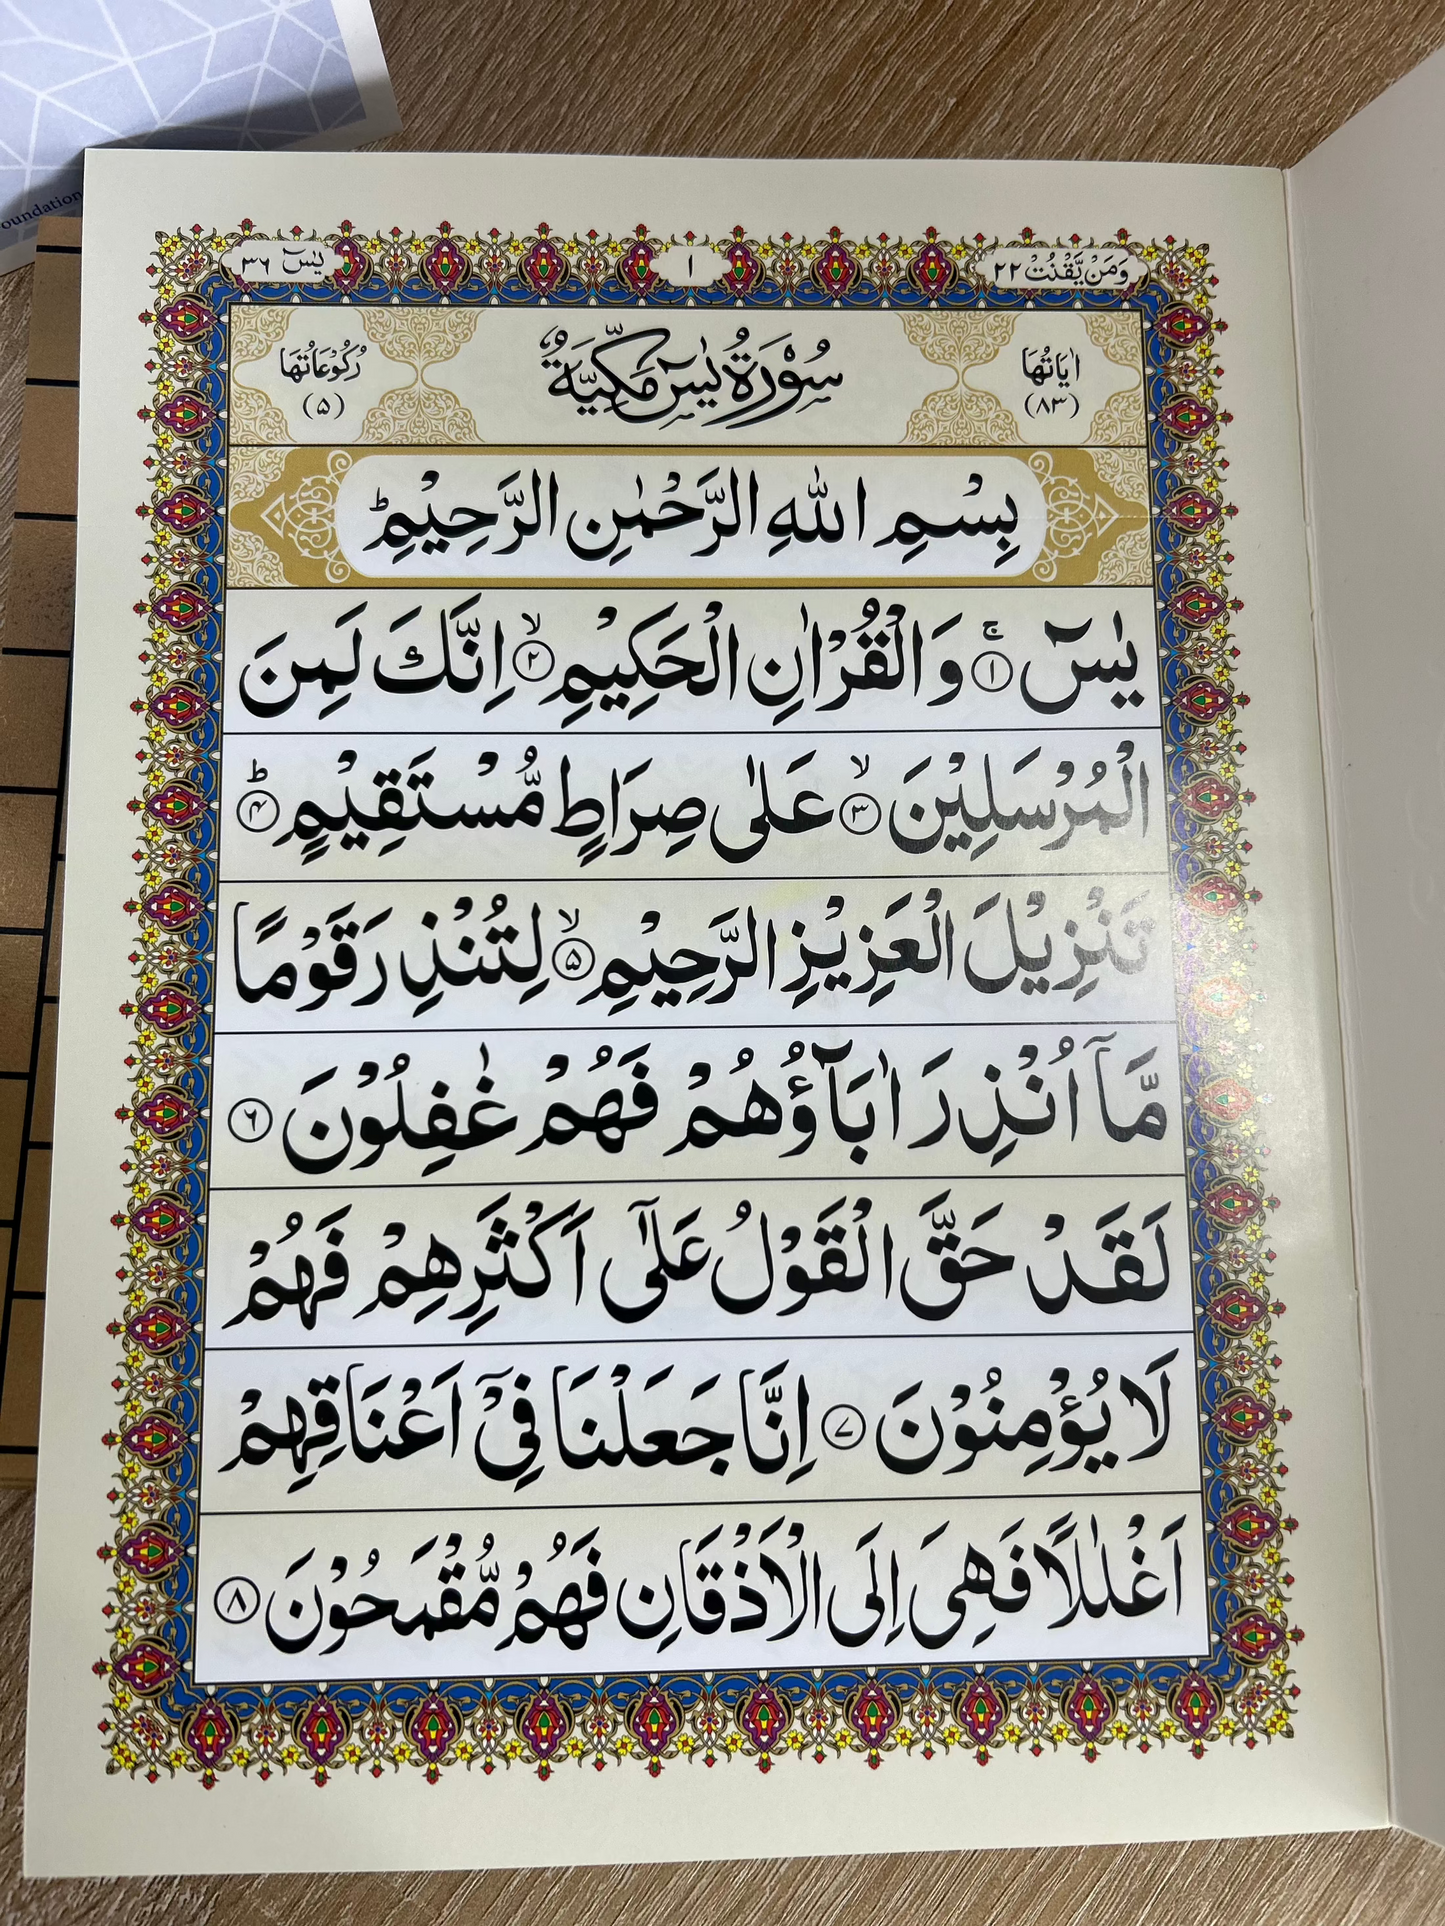 oundation
وَمَنْ يَّقْنُتْ ٢٢
١
يٰسٓ ٣٦
اٰيَاتُهَا
(٨٣)
سُوْرَةُ يٰسٓ مَكِّيَّةٌ
رُكُوْعَاتُهَا
(۵)
بِسْمِ اللهِ الرَّحْمٰنِ الرَّحِيْمِ ؕ
يٰسٓ ۚ ١ وَالْقُرْاٰنِ الْحَكِيْمِ ۙ ٢ اِنَّكَ لَمِنَ
الْمُرْسَلِيْنَ ۙ ٣ عَلٰى صِرَاطٍ مُّسْتَقِيْمٍ ؕ ۴
تَنْزِيْلَ الْعَزِيْزِ الرَّحِيْمِ ۙ ۵ لِتُنْذِرَ قَوْمًا
مَّآ اُنْذِرَ اٰبَآؤُهُمْ فَهُمْ غٰفِلُوْنَ ۶
لَقَدْ حَقَّ الْقَوْلُ عَلٰٓى اَكْثَرِهِمْ فَهُمْ
لَا يُؤْمِنُوْنَ ۷ اِنَّا جَعَلْنَا فِيْٓ اَعْنَاقِهِمْ
اَغْلٰلًا فَهِىَ اِلَى الْاَذْقَانِ فَهُمْ مُّقْمَحُوْنَ ٨